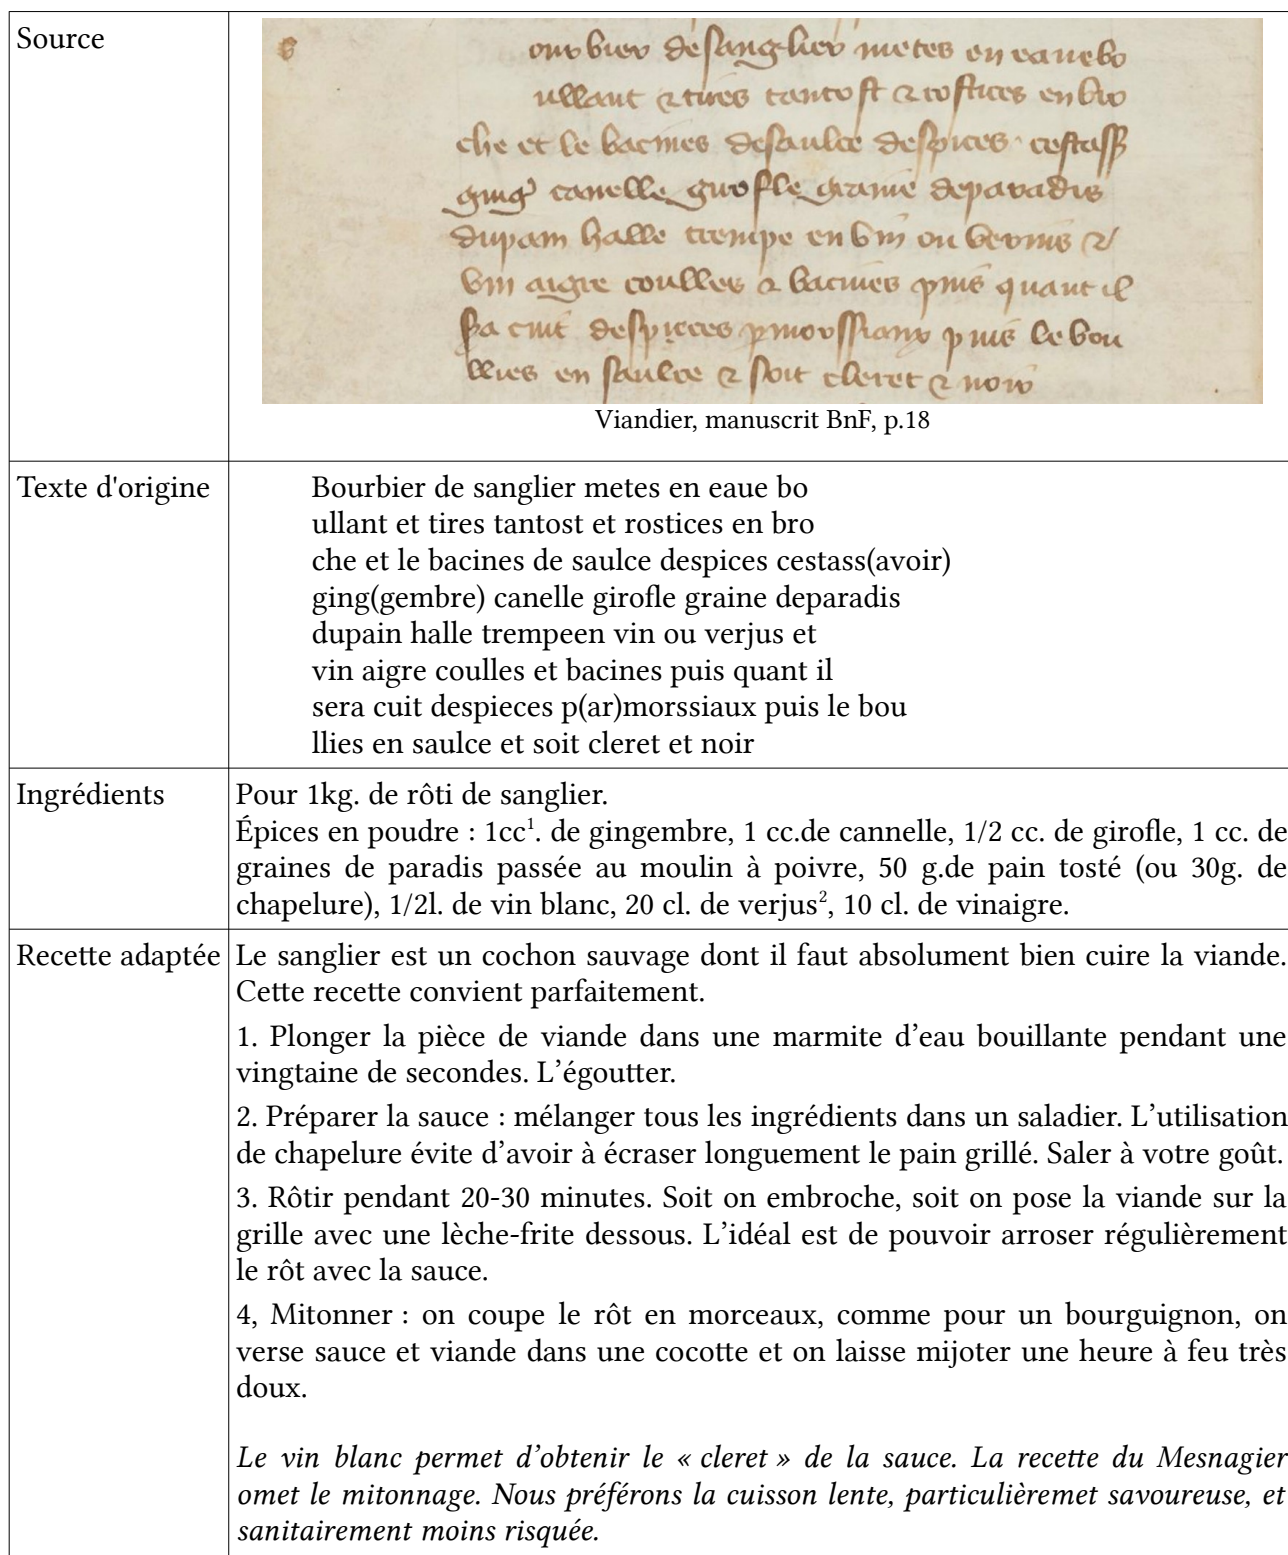 Source
our bier de sanglier metes en eaue bo
ullant & tires tantost & rostices en bro
che et le bacines de saulce despices cestass
ging canelle girofle graine deparadis
dupain halle trempe en vin ou verius &
vin aigre coulles & bacines puis quant il
sa cuit despieces pmorssiaux puis le bou
llies en saulce & soit cleret & noir
Viandier, manuscrit BnF, p.18
Texte d'origine
Bourbier de sanglier metes en eaue bo
ullant et tires tantost et rostices en bro
che et le bacines de saulce despices cestass(avoir)
ging(gembre) canelle girofle graine deparadis
dupain halle trempeen vin ou verjus et
vin aigre coulles et bacines puis quant il
sera cuit despieces p(ar)morssiaux puis le bou
llies en saulce et soit cleret et noir
Ingrédients
Pour 1kg. de rôti de sanglier.
Épices en poudre : 1cc¹. de gingembre, 1 cc.de cannelle, 1/2 cc. de girofle, 1 cc. de
graines de paradis passée au moulin à poivre, 50 g.de pain tosté (ou 30g. de
chapelure), 1/2l. de vin blanc, 20 cl. de verjus², 10 cl. de vinaigre.
Recette adaptée
Le sanglier est un cochon sauvage dont il faut absolument bien cuire la viande.
Cette recette convient parfaitement.
1. Plonger la pièce de viande dans une marmite d’eau bouillante pendant une
vingtaine de secondes. L’égoutter.
2. Préparer la sauce : mélanger tous les ingrédients dans un saladier. L’utilisation
de chapelure évite d’avoir à écraser longuement le pain grillé. Saler à votre goût.
3. Rôtir pendant 20-30 minutes. Soit on embroche, soit on pose la viande sur la
grille avec une lèche-frite dessous. L’idéal est de pouvoir arroser régulièrement
le rôt avec la sauce.
4, Mitonner : on coupe le rôt en morceaux, comme pour un bourguignon, on
verse sauce et viande dans une cocotte et on laisse mijoter une heure à feu très
doux.
Le vin blanc permet d’obtenir le « cleret » de la sauce. La recette du Mesnagier
omet le mitonnage. Nous préférons la cuisson lente, particulièremet savoureuse, et
sanitairement moins risquée.